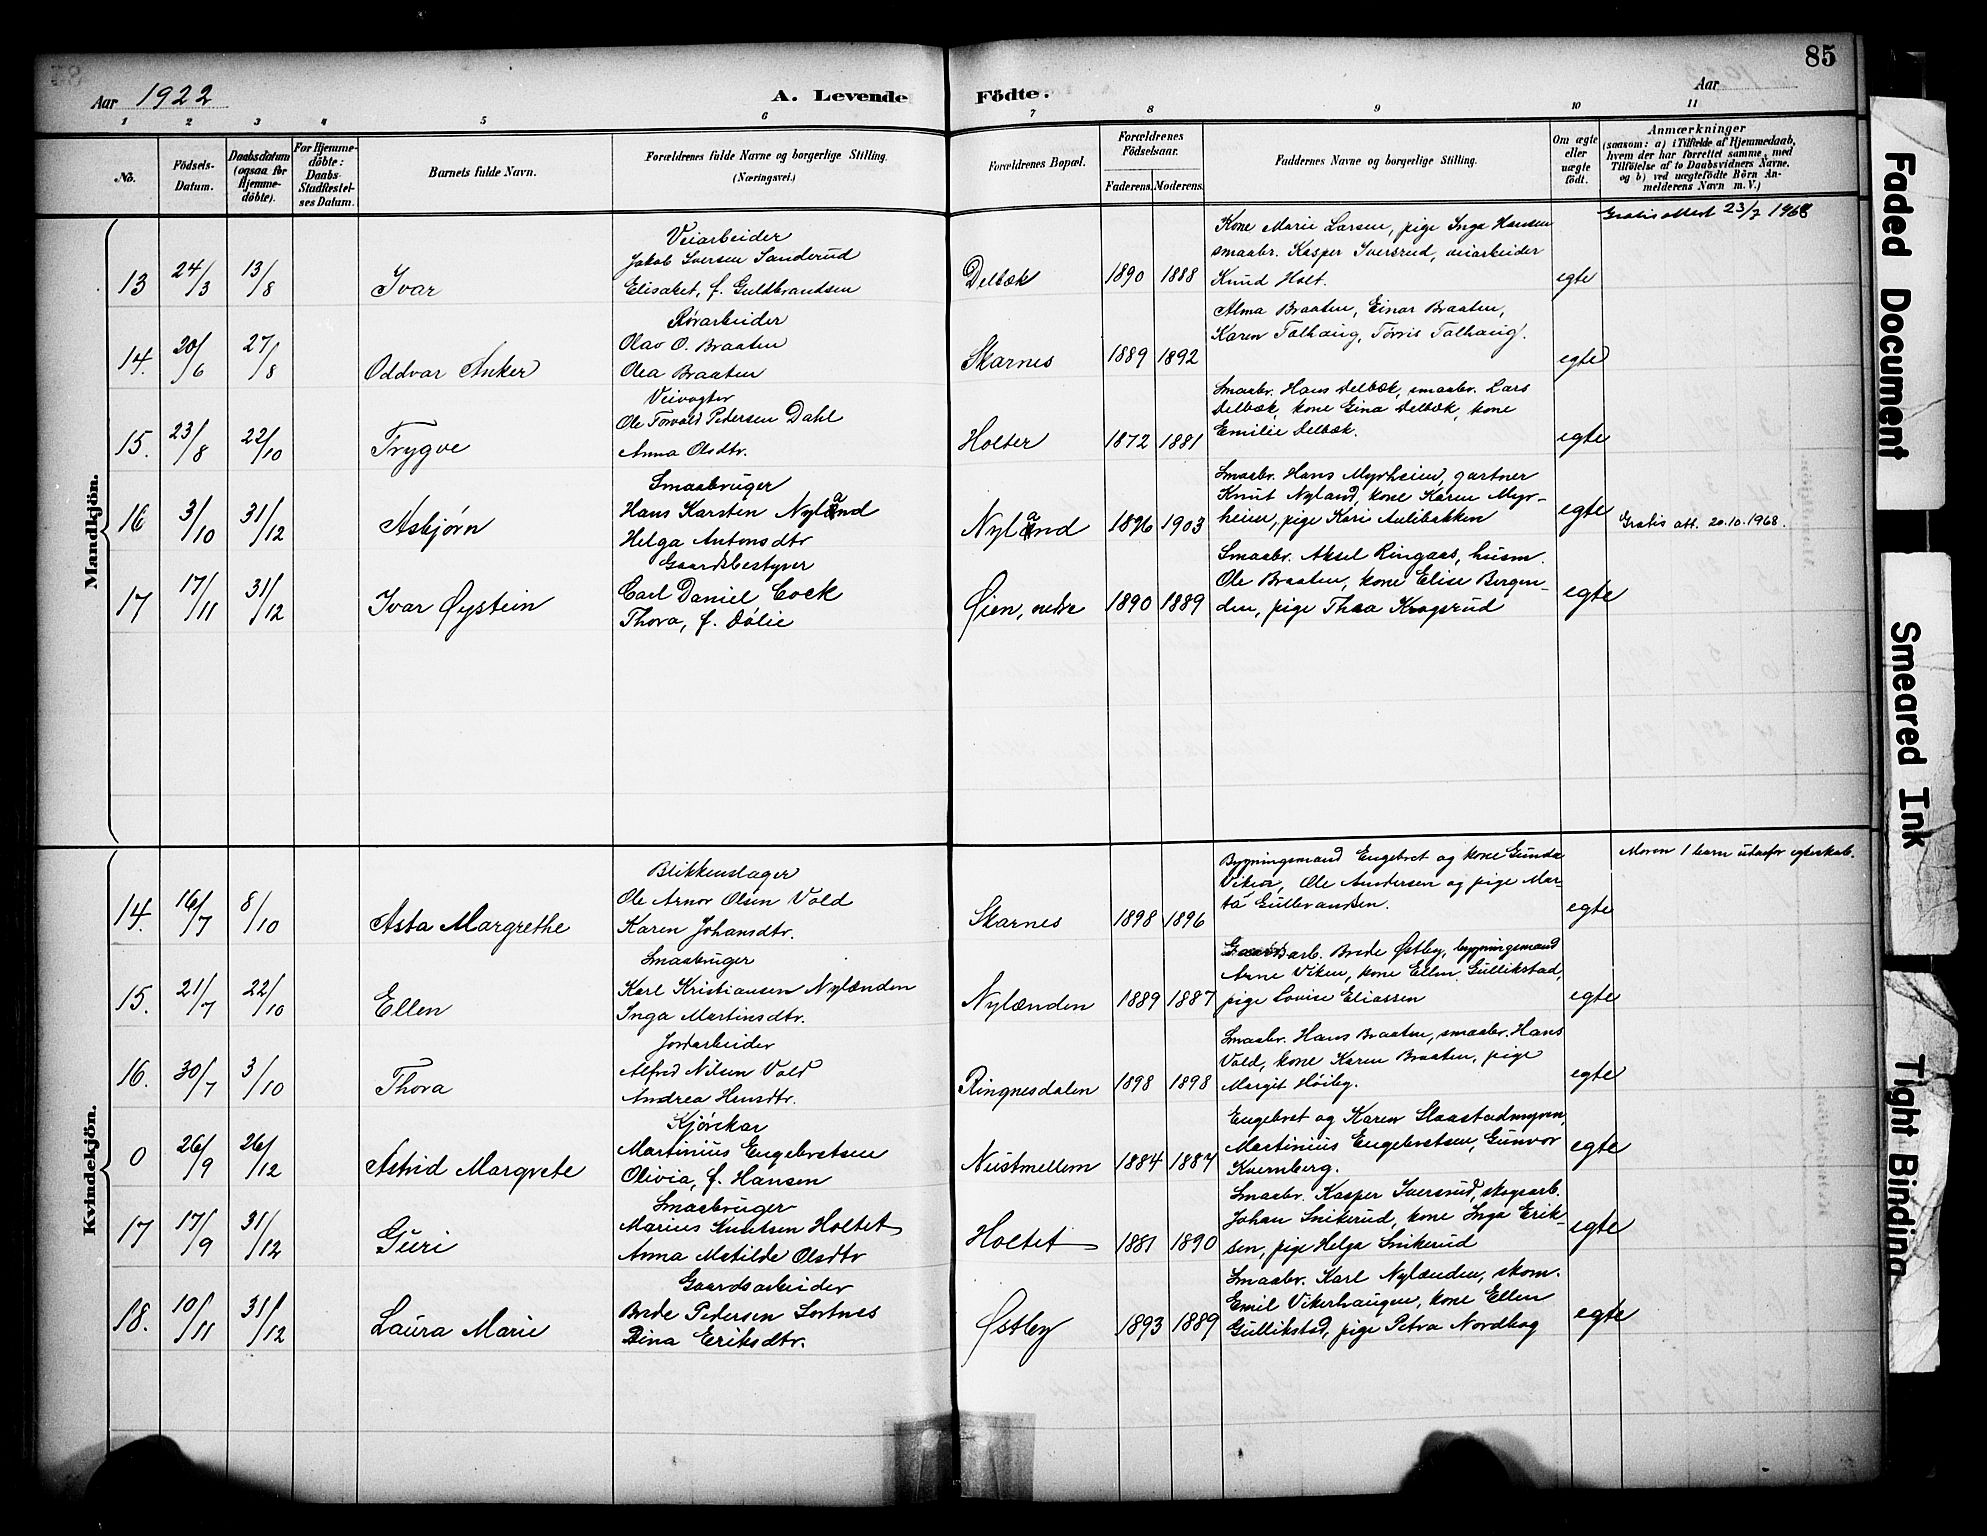 85
Aar 1922
A. Levende Födte.
Aar
1 2 3 4 5 6 7 8 9 10 11
No.
Födsels-Datum.
Daabsdatum (ogsaa for Hjemme-döbte).
For Hjemme-döbte: Daabs-Stadfæstel-ses Datum.
Barnets fulde Navn.
Forældrenes fulde Navne og borgerlige Stilling.
(Næringsvei.)
Forældrenes Bopæl.
Forældrenes Födselsaar.
Faderens. Moderens.
Faddernes Navne og borgerlige Stilling.
Om ægte eller uægte födt.
Anmærkninger
(saasom: a) i Tilfælde af Hjemmedaab, hvem der har forrettet samme, med Tilföielse af to Daabsvidners Navne, og b) ved uægtefödte Börn An-melderens Navn m. V.)
Mandkjön.
13 24/3 13/8 Ivar
Veiarbeider
Jakob Iversen Sanderud
Elisabet, f. Guldbrandsen
Delbæk 1890 1888
Kone Marie Larsen, pige Inga Hansen
smaabr. Kasper Iversrud, veiarbeider
Knud Holt.
egte
Gratis attest 23/7 1968
14. 20/6 27/8 Oddvar Anker
Rørarbeider
Olav O. Braaten
Olea Braaten
Skarnes 1889 1892
Alma Braaten, Einar Braaten,
Karen Tolhaug, Torris Tolhaug.
egte
15. 23/8 22/10 Trygve
Veivogter
Ole Torvald Pedersen Dahl
Anna Olsdtr.
Holter 1872 1881
Smaabr. Hans Delbæk, smaabr. Lars
Delbæk, kone Gina Delbæk, kone
Emilie Delbæk.
egte
16 3/10 31/12 Asbjørn
Smaabruger
Hans Karsten Nyland
Helga Antonsdtr
Nyland 1896 1903
Smaabr. Hans Myrheim, gartner
Knut Nyland, kone Karen Myr-
heim, pige Kari Aulibakken
egte
Gratis att. 20.10.1968.
17 17/11 31/12 Ivar Øystein
Gaardsbestyrer
Carl Daniel Cock
Thora, f. Dólie
Øien, nedre 1890 1889
Smaabr. Aksel Ringaas, husm.
Ole Braaten, kone Elise Bergen-
den, pige Thea Krogsrud
egte
Kvindekjön.
14. 16/7 8/10 Asta Margrethe
Blikkenslager
Ole Arnor Olsen Vold
Karen Johansdtr.
Skarnes 1898 1896
Bygningsmand Engebret og kone Gunda
Viken, Ole Andersen og pige Mar-
ta Gulbransen.
egte
Moren 1 barn utenfor egteskab.
15. 21/7 22/10 Ellen
Smaabruger
Karl Kristiansen Nylænden
Inga Martinsdtr.
Nylænden 1889 1887
Gaardsarb. Brede Østby, bygningsmand
Arne Viken, kone Ellen Gullikstad,
pige Lovise Eliassen
egte
16. 30/7 3/10 Thora
Jordarbeider
Alfred Nilsen Vold
Andrea Hansdtr.
Ringnesdalen 1898 1898
Smaabr. Hans Braaten, smaabr. Hans
Vold, kone Karen Braaten, pige
Margit Høiby.
egte
0 26/9 26/12 Astrid Margrete
Kjørekar
Martinius Engebretsen
Olivia, f. Hansen
Neistmellem 1884 1887
Engebret og Karen Slaastadmyren,
Martinius Engebretsen, Gunvor
Kvernberg.
egte
17 17/9 31/12 Guri
Smaabruger
Marius Knutsen Holtet
Anna Matilde Olsdtr
Holtet 1881 1890
Smaabr. Kasper Iversrud, skogsarb.
Johan Snikerud, kone Inga Erik-
sen, pige Helga Snikerud
egte
18. 10/11 31/12 Laura Marie
Gaardsarbeider
Brede Pedersen Sortnes
Dina Eriksdtr.
Østby 1893 1889
Smaabr. Karl Nylænden, skom.
Emil Vikerhaugen, kone Ellen
Gullikstad, pige Petra Nordhag
egte
Faded Document
Smeared Ink
Tight Binding